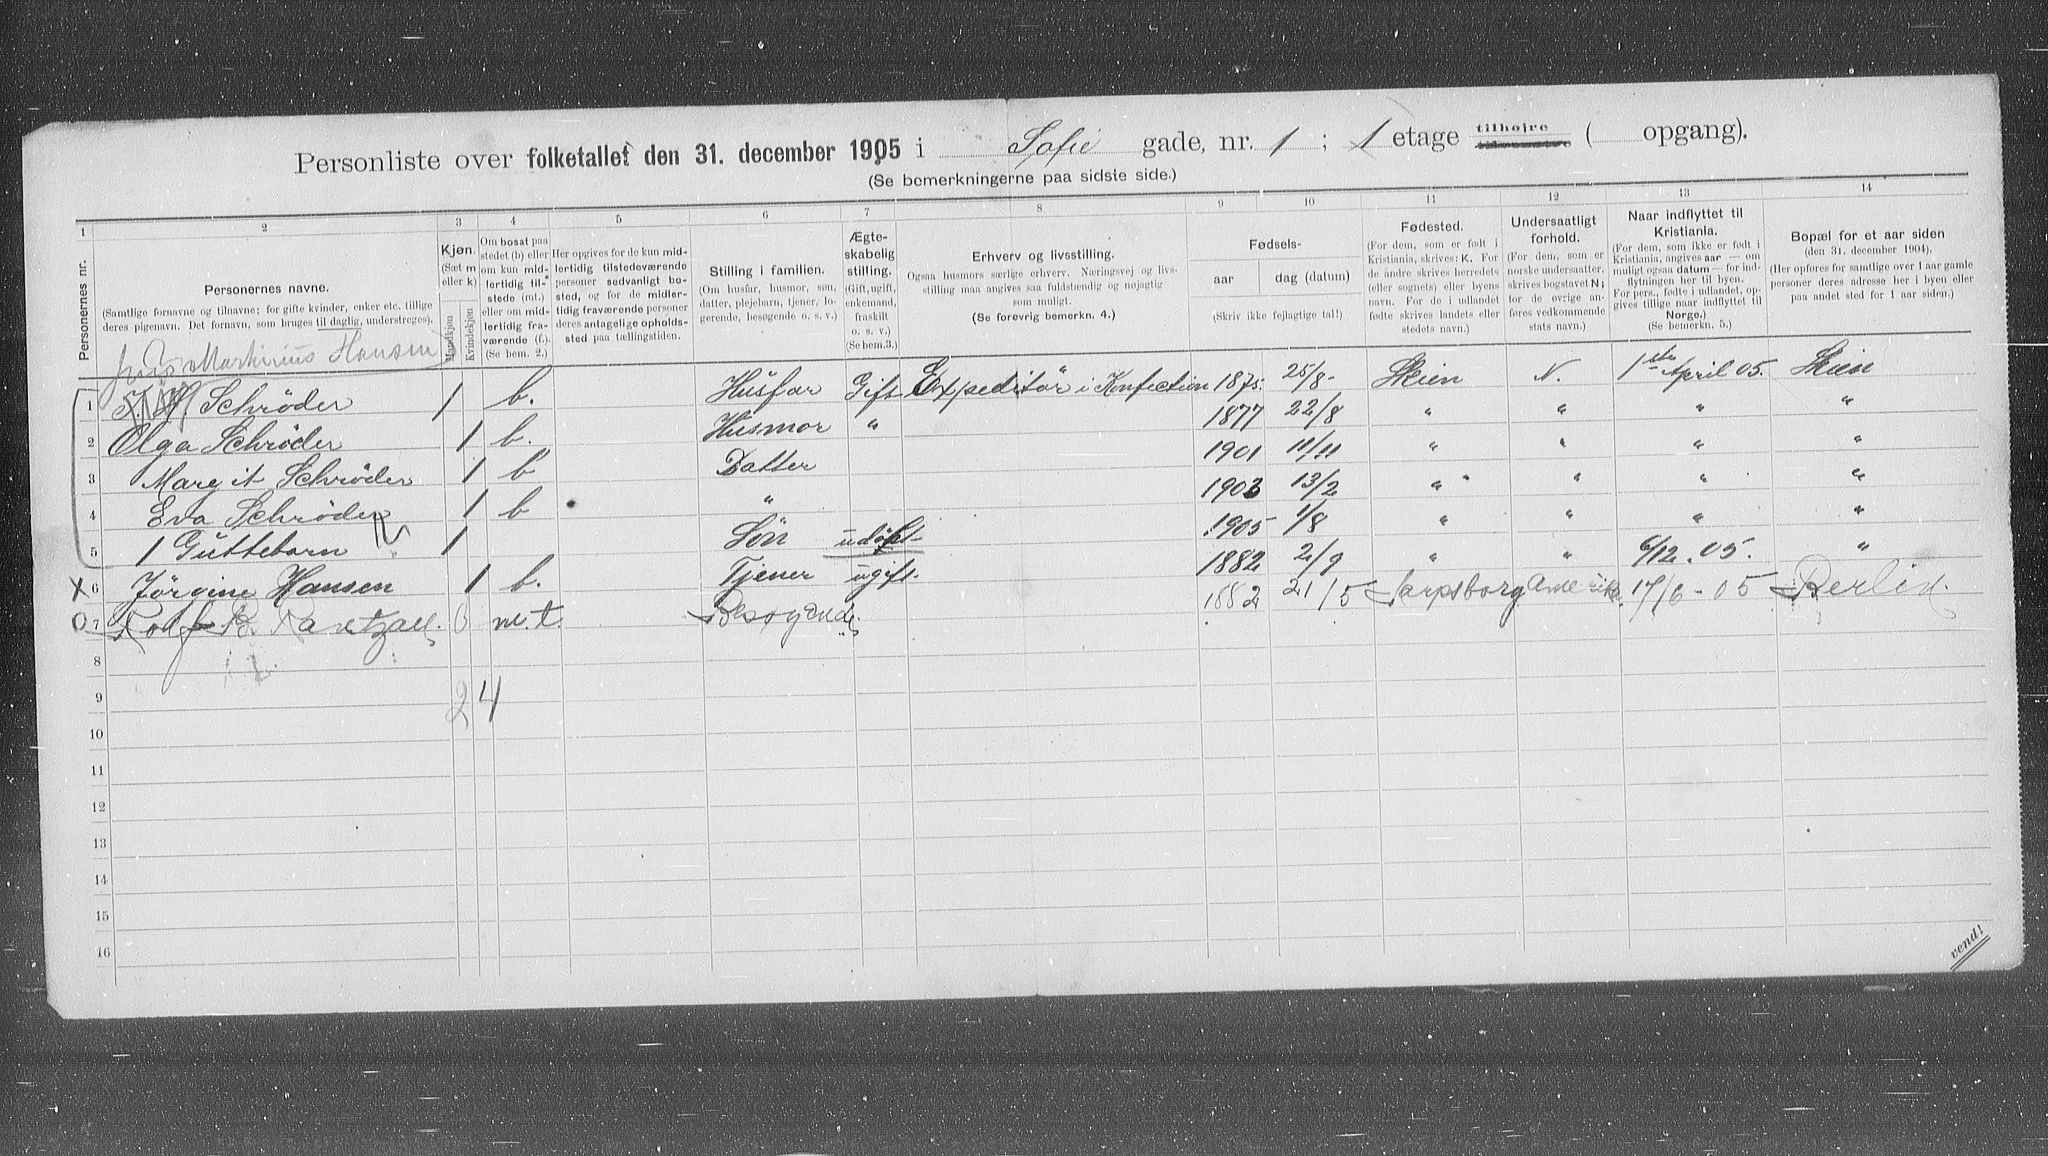 Personliste over folketallet den 31. december 1905 i Sofie gade, nr. 1 ; 1 etage tilhøjre ( opgang).
(Se bemerkningerne paa sidste side.)
1 2 3 4 5 6 7 8 9 10 11 12 13 14
Personernes nr.
Personernes navne.
(Samtlige fornavne og tilnavne; for gifte kvinder, enker etc. tillige deres pigenavn. Det fornavn, som bruges til daglig, understreges).
Kjøn.
(Sæt m eller k)
Mandkjøn
Kvindekjøn
Om bosat paa stedet (b) eller om kun midlertidig tilstede (mt.) eller om midlertidig fraværende (f.)
(Se bem. 2.)
Her opgives for de kun midlertidig tilstedeværende personer sedvanligt bosted, og for de midlertidig fraværende personer deres antagelige opholdssted paa tællingstiden.
Stilling i familien.
(Om husfar, husmor, søn, datter, plejebarn, tjener, logerende, besøgende o. s. v.)
Ægteskabelig stilling.
(Gift, ugift, enkemand, fraskilt o. s. v.)
(Se bem.3.)
Erhverv og livsstilling.
Ogsaa husmors særlige erhverv. Næringsvej og livsstilling maa angives saa fuldstændig og nøjagtig som muligt.
(Se forøvrig bemerkn. 4.)
Fødsels-
aar dag (datum)
(Skriv ikke fejlagtige tal!)
Fødested.
(For dem, som er født i Kristiania, skrives: K. For de andre skrives herredets (eller sognets) eller byens navn. For de i udlandet fødte skrives landets eller stedets navn.)
Undersaatligt forhold.
(For dem, som er norske undersaatter, skrives bogstavet N; for de øvrige angives vedkommende stats navn.)
Naar indflyttet til Kristiania.
(For dem, som ikke er født i Kristiania, angives aar — om muligt ogsaa datum — for indflytningen her til byen. For pers., fødte i udlandet, opgives tillige naar indflyttet til Norge.)
(Se bemerkn. 5.)
Bopæl for et aar siden
(den 31. december 1904).
(Her opføres for samtlige over 1 aar gamle personer deres adresse her i byen eller paa andet sted for 1 aar siden.)
Martinius Hansen
1 Schrøder 1 b. Husfar Gift Expeditør i Konfection 1875. 25/8- Skien N. 1ste April 05. Skien
2 Olga Schrøder 1 b. Husmor " 1877 22/8 " " " "
3 Margit Schrøder 1 b Datter 1901 11/11 " " " "
4 Eva Schrøder 1 b " 1903 13/2 " " " "
5 1 Guttebarn 1 Søn udøbt 1905 1/8 " " " "
X 6 Jørgine Hansen 1 b. Tjener ugift. 1882 2/9 " " 6/12. 05. "
O. 7 Rolf B. Rantzau. 6 m.t. Besøgende 1882 21/5 Sarpsborg Amerika. 17/6 - 05 Berlin.
8
2 4
9
10
11
12
13
14
15
16
vend!